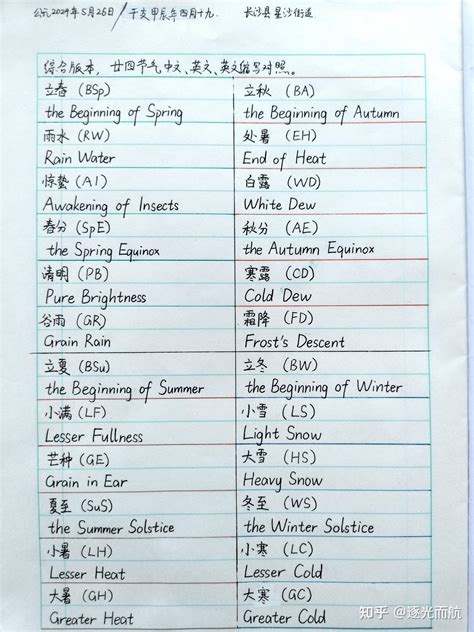 公元2024年5月26日/干支甲辰年四月十九. 长沙县星沙街道
综合版本，廿四节气中文、英文、英文缩写对照。
立春 (BSp)
the Beginning of Spring
雨水 (RW)
Rain Water
惊蛰 (AI)
Awakening of Insects
春分 (SpE)
the Spring Equinox
清明 (PB)
Pure Brightness
谷雨 (GR)
Grain Rain
立夏 (BSu)
the Beginning of Summer
小满 (LF)
Lesser Fullness
芒种 (GE)
Grain in Ear
夏至 (SuS)
the Summer Solstice
小暑 (LH)
Lesser Heat
大暑 (GH)
Greater Heat
立秋 (BA)
the Beginning of Autumn
处暑 (EH)
End of Heat
白露 (WD)
White Dew
秋分 (AE)
the Autumn Equinox
寒露 (CD)
Cold Dew
霜降 (FD)
Frost's Descent
立冬 (BW)
the Beginning of Winter
小雪 (LS)
Light Snow
大雪 (HS)
Heavy Snow
冬至 (WS)
the Winter Solstice
小寒 (LC)
Lesser Cold
大寒 (GC)
Greater Cold
知乎 @逐光而航